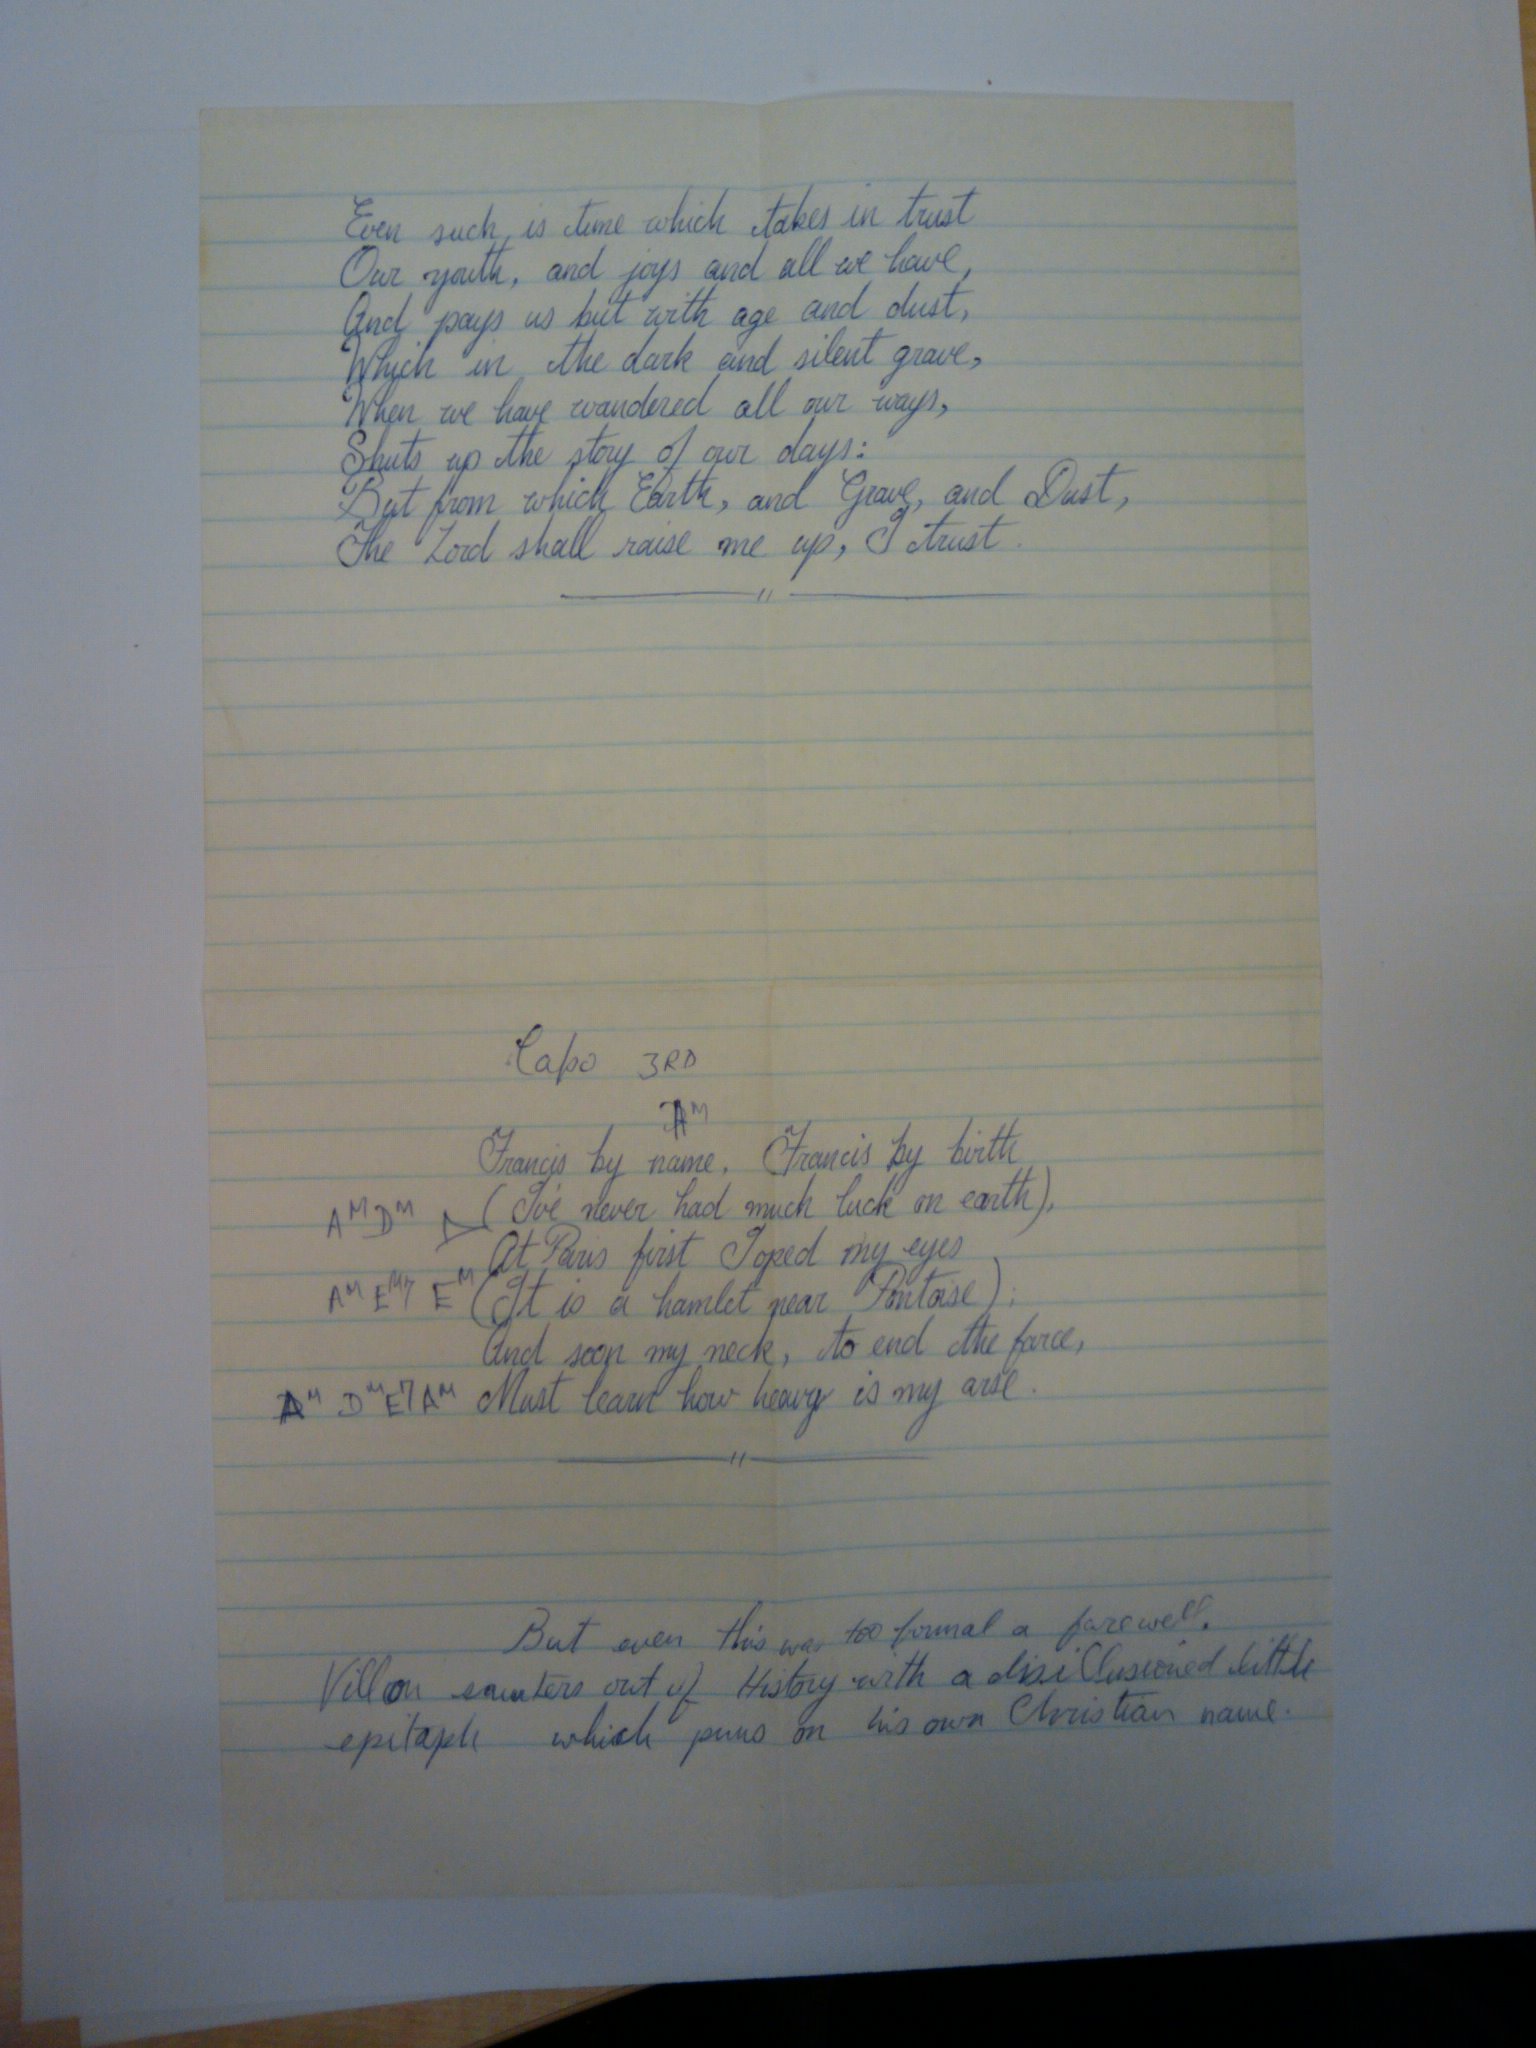 Even such is time which takes in trust
Our youth, and joys and all we have,
And pays us but with age and dust,
Which in the dark and silent grave,
When we have wandered all our ways,
Shuts up the story of our days:
But from which Earth, and Grave, and Dust,
The Lord shall raise me up, I trust.
Capo 3RD
AM
Francis by name, Francis by birth
AM DM (I've never had much luck on earth),
At Paris first I oped my eyes
AM EM7 EM (It is a hamlet near Pontoise);
And soon my neck, to end the farce,
AM DM E7 AM Must learn how heavy is my arse.
But even this was too formal a farewell.
Villon saunters out of History with a disillusioned little
epitaph which puns on his own Christian name.